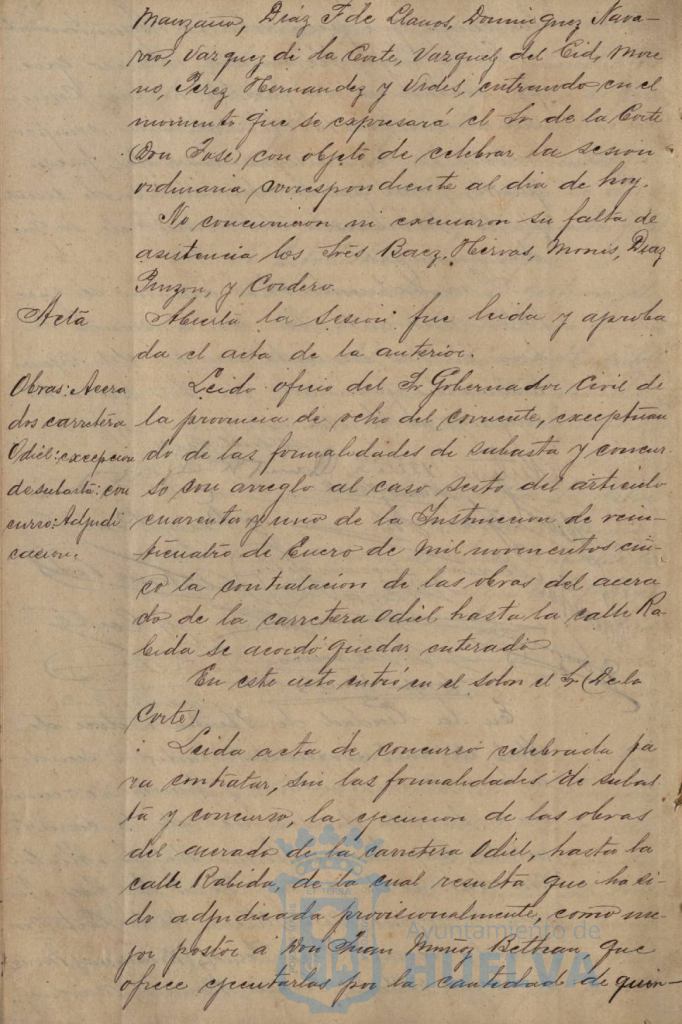 Manzano, Díaz F de Llanos, Dominguez Nava-
rro, Vazquez de la Corte, Vazquez del Cid, More
no, Perez Hernandez y Vides, entrando en el
momento que se expresará el Sr de la Corte
(Don José) con objeto de celebrar la sesion
ordinaria correspondiente al dia de hoy.
No concurrieron ni excusaron su falta de
asistencia los Sres Baez, Hervas, Monis, Diaz
Pinzon, y Cordero.
Acta
Abierta la sesion fue leida y aproba
da el acta de la anterior.
Obras: Acera
dos carretera
Odiel: excepcion
de subasta: con
curso: Adjudi
cacion.
Leido oficio del Sr Gobernador Civil de
la provincia de ocho del corriente, exceptuan
do de las formalidades de subasta y concur
so con arreglo al caso sesto del articulo
cuarenta y uno de la Instruccion de vein-
ticuatro de Enero de mil novecientos cin-
co la contratacion de las obras del acera
do de la carretera Odiel hasta la calle Rá-
bida se acordó quedar enterado
En este acto entró en el salon el Sr (De la
Corte)
Leida acta de concurso celebrada pa
ra contratar, sin las formalidades de subas
ta y concurso, la ejecucion de las obras
del acerado de la carretera Odiel, hasta la
calle Rabida, de la cual resulta que ha si-
do adjudicada provisionalmente, como me
jor postor a Don Juan Muñoz Beltran que
ofrece ejecutarlas por la cantidad de quin-
Ayuntamiento de
HUELVA